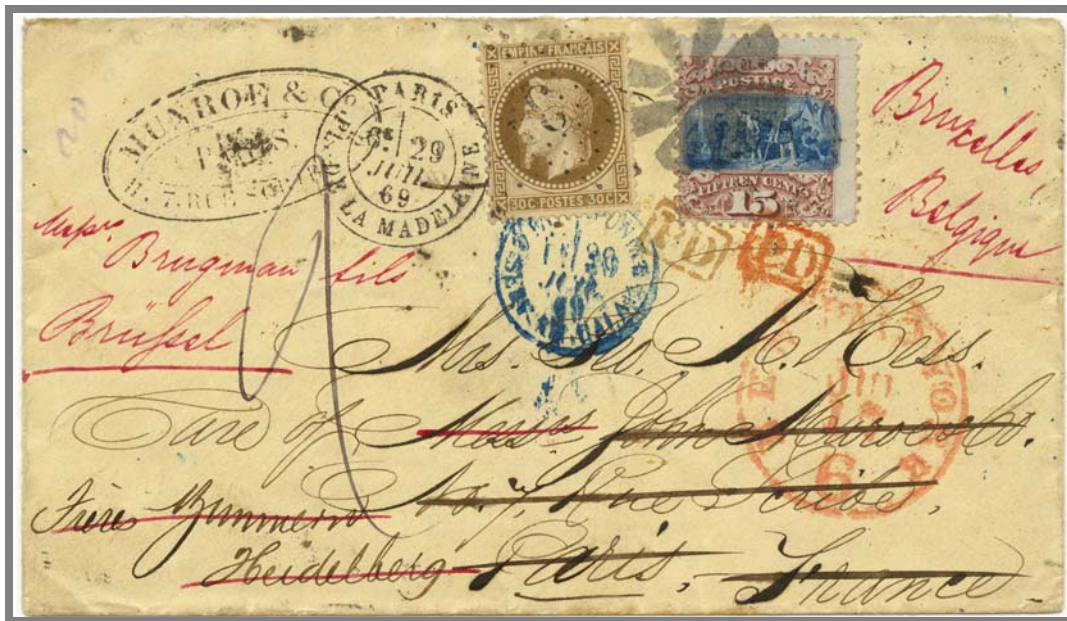 MUNROE & Co
PARIS
7. RUE SCRIBE
PARIS
29
JUIL
69
PL. DE LA MADELEINE
EMPIRE FRANÇAIS
30C POSTES 30C
POSTAGE
FIFTEEN CENTS
15
Bruxelles,
Belgique
20
PD
PD
Brugman fils
Brüssel
Mrs. Geo. M. Hess.
Care of Messrs John Munroe & Co.
No. 7, Rue Scribe,
Frères Zimmern
Heidelberg Paris, France
NEW YORK
6